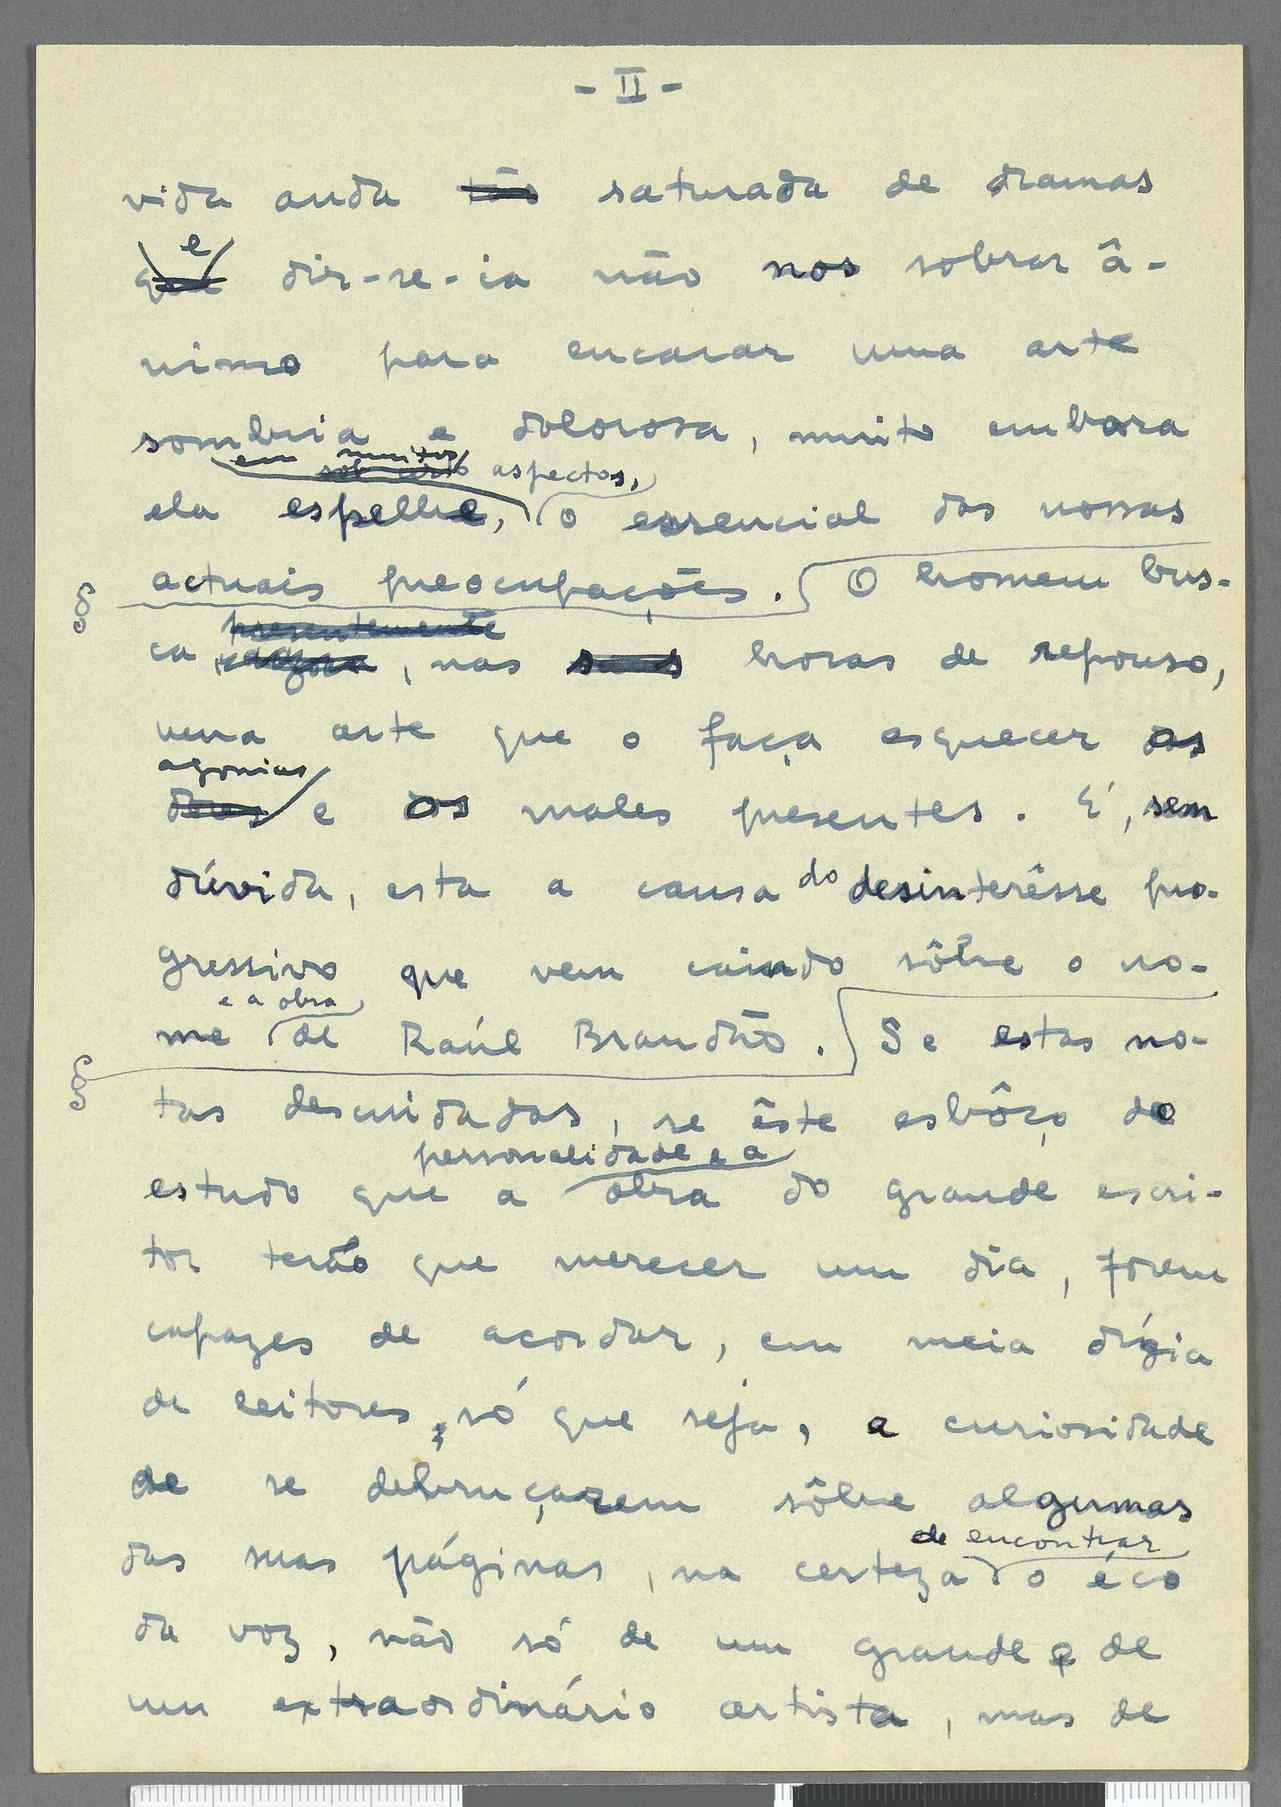 - II -
vida anda tão saturada de dramas
e
que dir-se-ia não nos sobrar â-
nimo para encarar uma arte
sombria e dolorosa, muito embora
em muitos
sob certo aspectos,
ela espelhe, o essencial das nossas
actuais preocupações. O homem bus-
§
presentemente
ca, agora, nas suas horas de repouso,
uma arte que o faça esquecer as
agonias
e os males presentes. É, sem
dúvida, esta a causa do desinterêsse pro-
gressivo que vem caindo sôbre o no-
e a obra
me de Raúl Brandão. Se estas no-
§
tas descuidadas, se êste esbôço do
personalidade e a
estudo que a obra do grande escri-
tor terão que merecer um dia, forem
capazes de acordar, em meia dúzia
de leitores, só que seja, a curiosidade
de se debruçarem sôbre algumas
de encontrar
das suas páginas, na certeza do éco
da voz, não só de um grande e de
um extraordinário artista, mas de